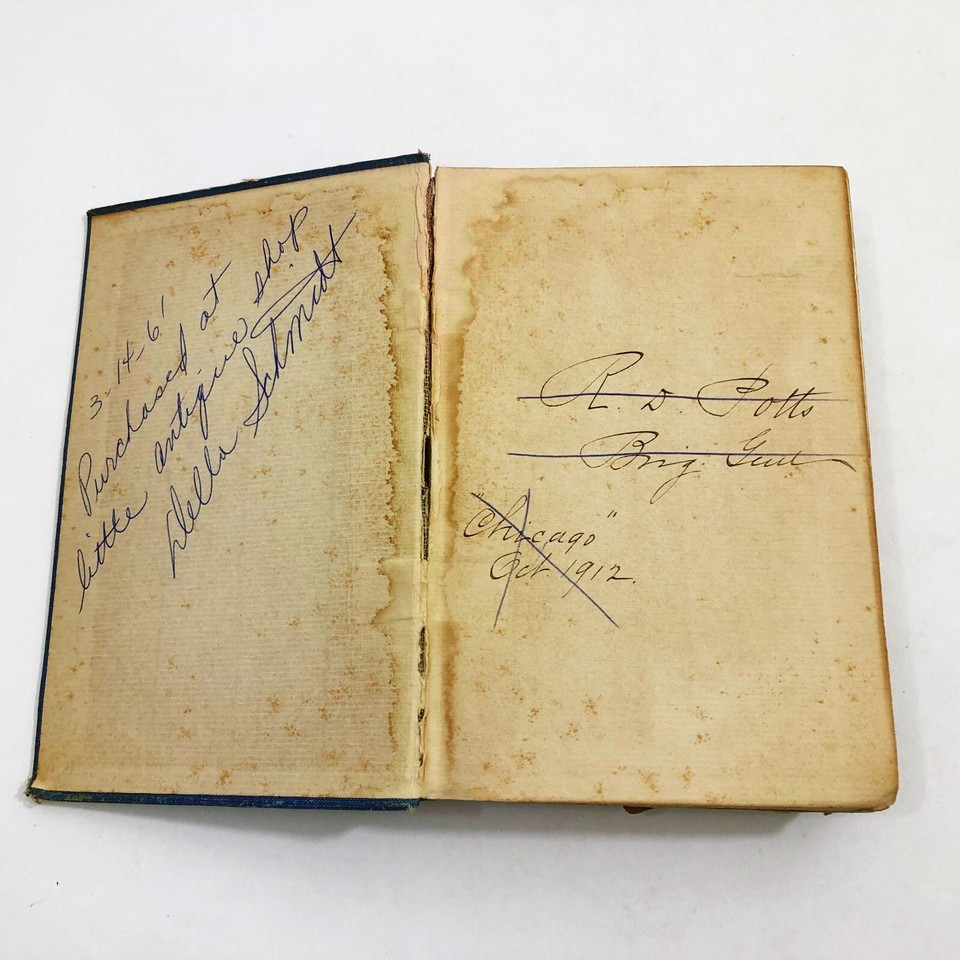 3-14-61
Purchased at
little antique shop
Della Schmidt
R. D. Potts
Brig. Genl
"Chicago"
Oct. 1912.